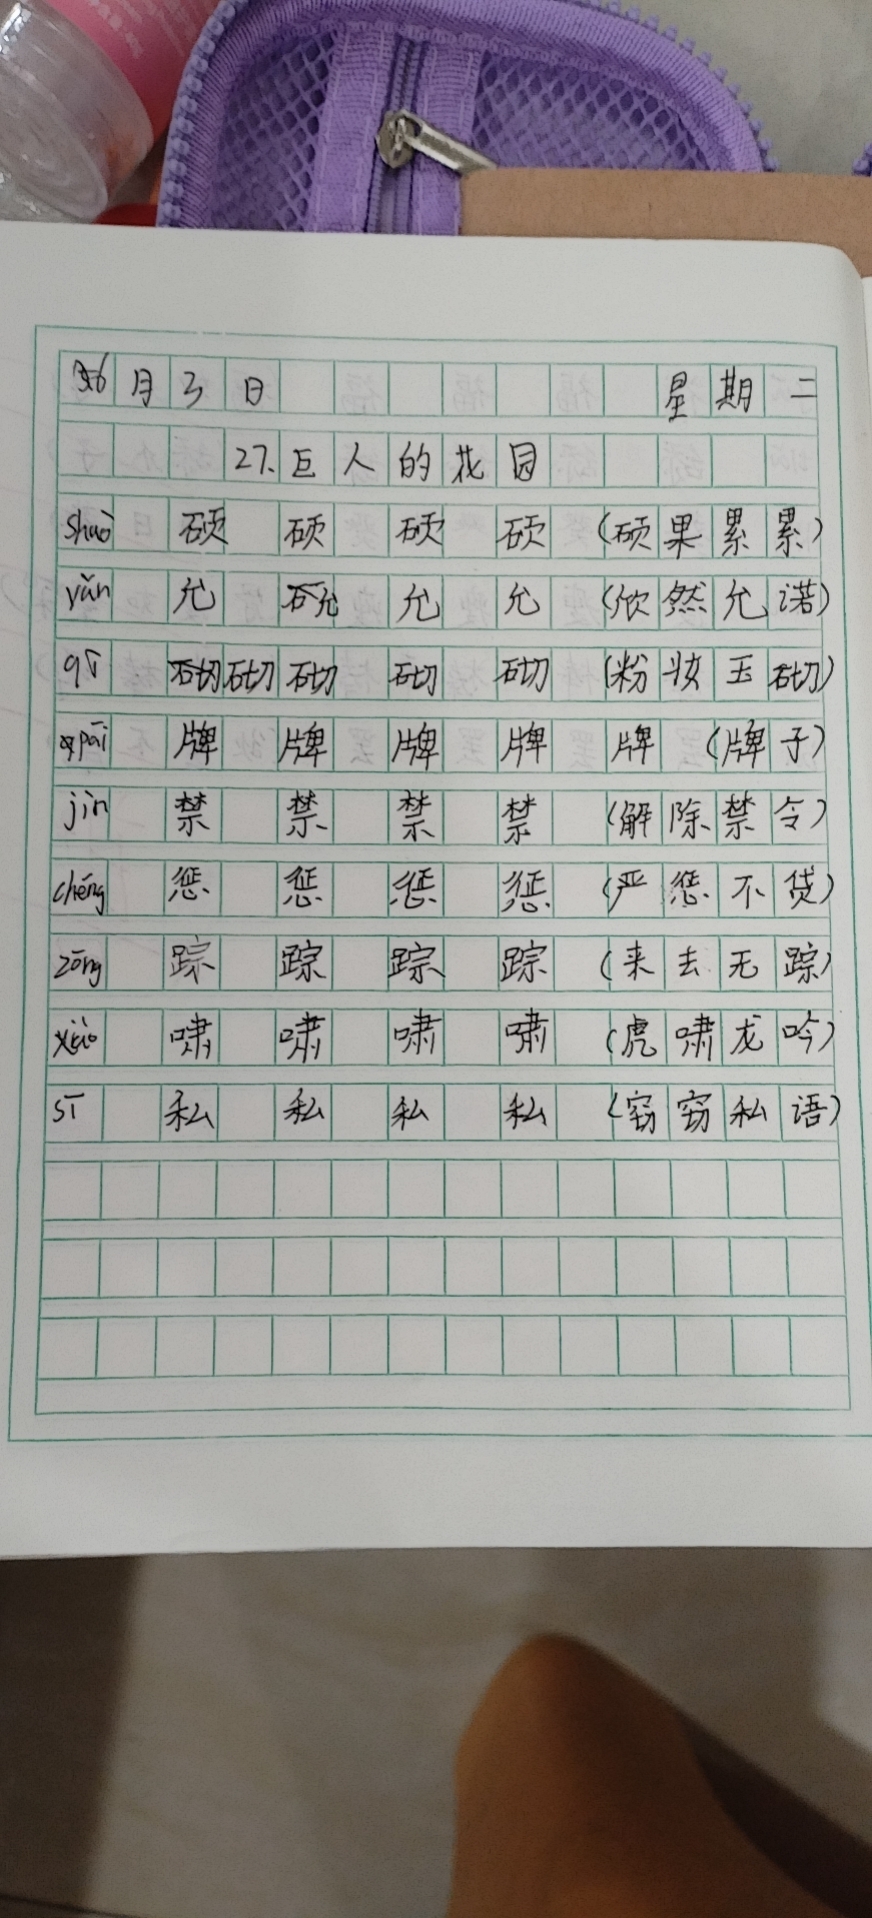 6月3日 星期二
27.巨人的花园
shuò 硕 硕 硕 硕 (硕果累累)
yǔn 允 允 允 允 (欣然允诺)
qì 砌 砌 砌 砌 砌 (粉妆玉砌)
pái 牌 牌 牌 牌 牌 (牌子)
jìn 禁 禁 禁 禁 (解除禁令)
chéng 惩 惩 惩 惩 (严惩不贷)
zōng 踪 踪 踪 踪 (来去无踪)
xiào 啸 啸 啸 啸 (虎啸龙吟)
sī 私 私 私 私 (窃窃私语)